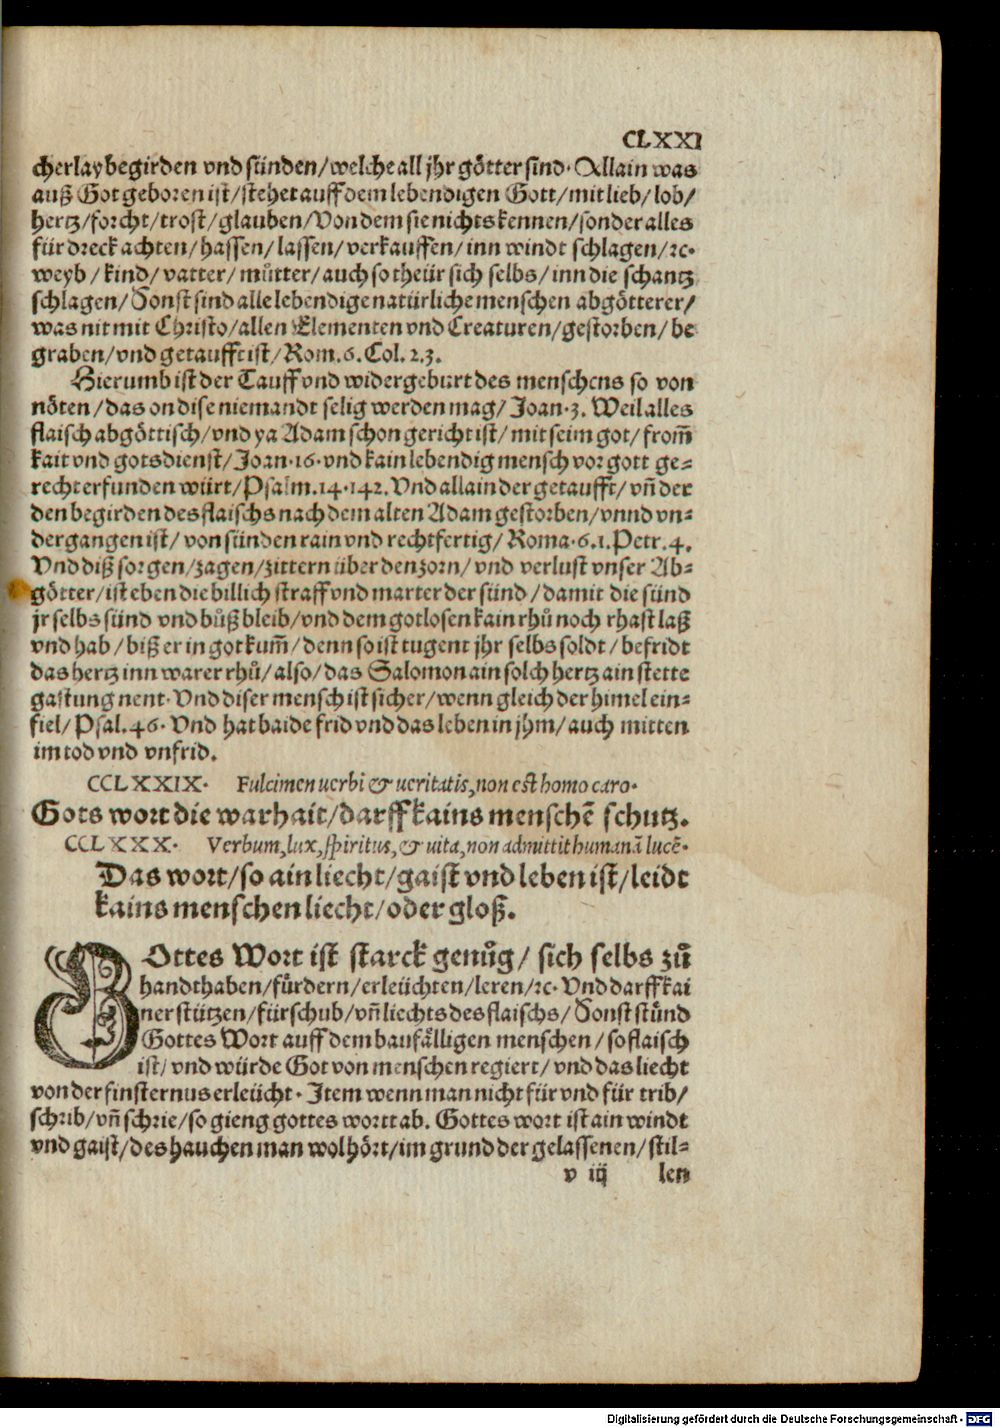 CLXXI
cherlay begirden vnd sünden/welche all jhr götter sind. Allain was
auß Got geboren ist/stehet auff dem lebendigen Gott/mit lieb/lob/
hertz/forcht/trost/glauben/Von dem sie nichts kennen/sonder alles
für dreck achten/hassen/lassen/verkauffen/inn windt schlagen/ꝛc.
weyb/kind/vatter/můtter/auch so theür sich selbs/inn die schantz
schlagen/Sonst sind alle lebendige natürliche menschen abgötterer/
was nit mit Christo/allen Elementen vnd Creaturen/gestorben/be
graben/vnd getaufft ist/Rom.6.Col.2.3.
Hierumb ist der Tauff vnd widergeburt des menschens so von
nöten/das on dise niemandt selig werden mag/Joan.3. Weil alles
flaisch abgöttisch/vnd ya Adam schon gericht ist/mit seim got/from̃
kait vnd gotsdienst/Joan.16.vnd kain lebendig mensch vor gott ge-
recht erfunden würt/Psalm.14.142.Vnd allain der getaufft/vñ der
den begirden des flaischs nach dem alten Adam gestorben/vnnd vn-
dergangen ist/von sünden rain vnd rechtfertig/Roma.6.1.Petr.4.
Vnd diß sorgen/zagen/zittern über den zorn/vnd verlust vnser Ab-
götter/ist eben die billich straff vnd marter der sünd/damit die sünd
jr selbs sünd vnd bůß bleib/vnd dem gotlosen kain rhů noch rhast laß
vnd hab/biß er in got kum̃/denn so ist tugent jhr selbs soldt/befridt
das hertz inn warer rhů/also/das Salomon ain solch hertz ain stette
gastung nent. Vnd diser mensch ist sicher/wenn gleich der himel ein-
fiel/Psal.46. Vnd hat baide frid vnd das leben in jhm/auch mitten
im tod vnd vnfrid.
CCLXXIX. Fulcimen uerbi & ueritatis, non est homo caro.
Gots wort die warhait/darff kains menschẽ schutz.
CCLXXX. Verbum, lux, spiritus, & uita, non admittit humanã lucẽ.
Das wort/so ain liecht/gaist vnd leben ist/leidt
kains menschen liecht/oder gloß.
GOttes Wort ist starck genůg/sich selbs zů
handthaben/fürdern/erleüchten/leren/ꝛc. Vnd darff kai
ner stützen/fürschub/vñ liechts des flaischs/Sonst stünd
Gottes Wort auff dem baufälligen menschen/so flaisch
ist/vnd würde Got von menschen regiert/vnd das liecht
von der finsternus erleücht. Item wenn man nicht für vnd für trib/
schrib/vñ schrie/so gieng gottes wort ab. Gottes wort ist ain windt
vnd gaist/des hauchen man wol hört/im grund der gelassenen/stil-
v iij len
Digitalisierung gefördert durch die Deutsche Forschungsgemeinschaft - DFG